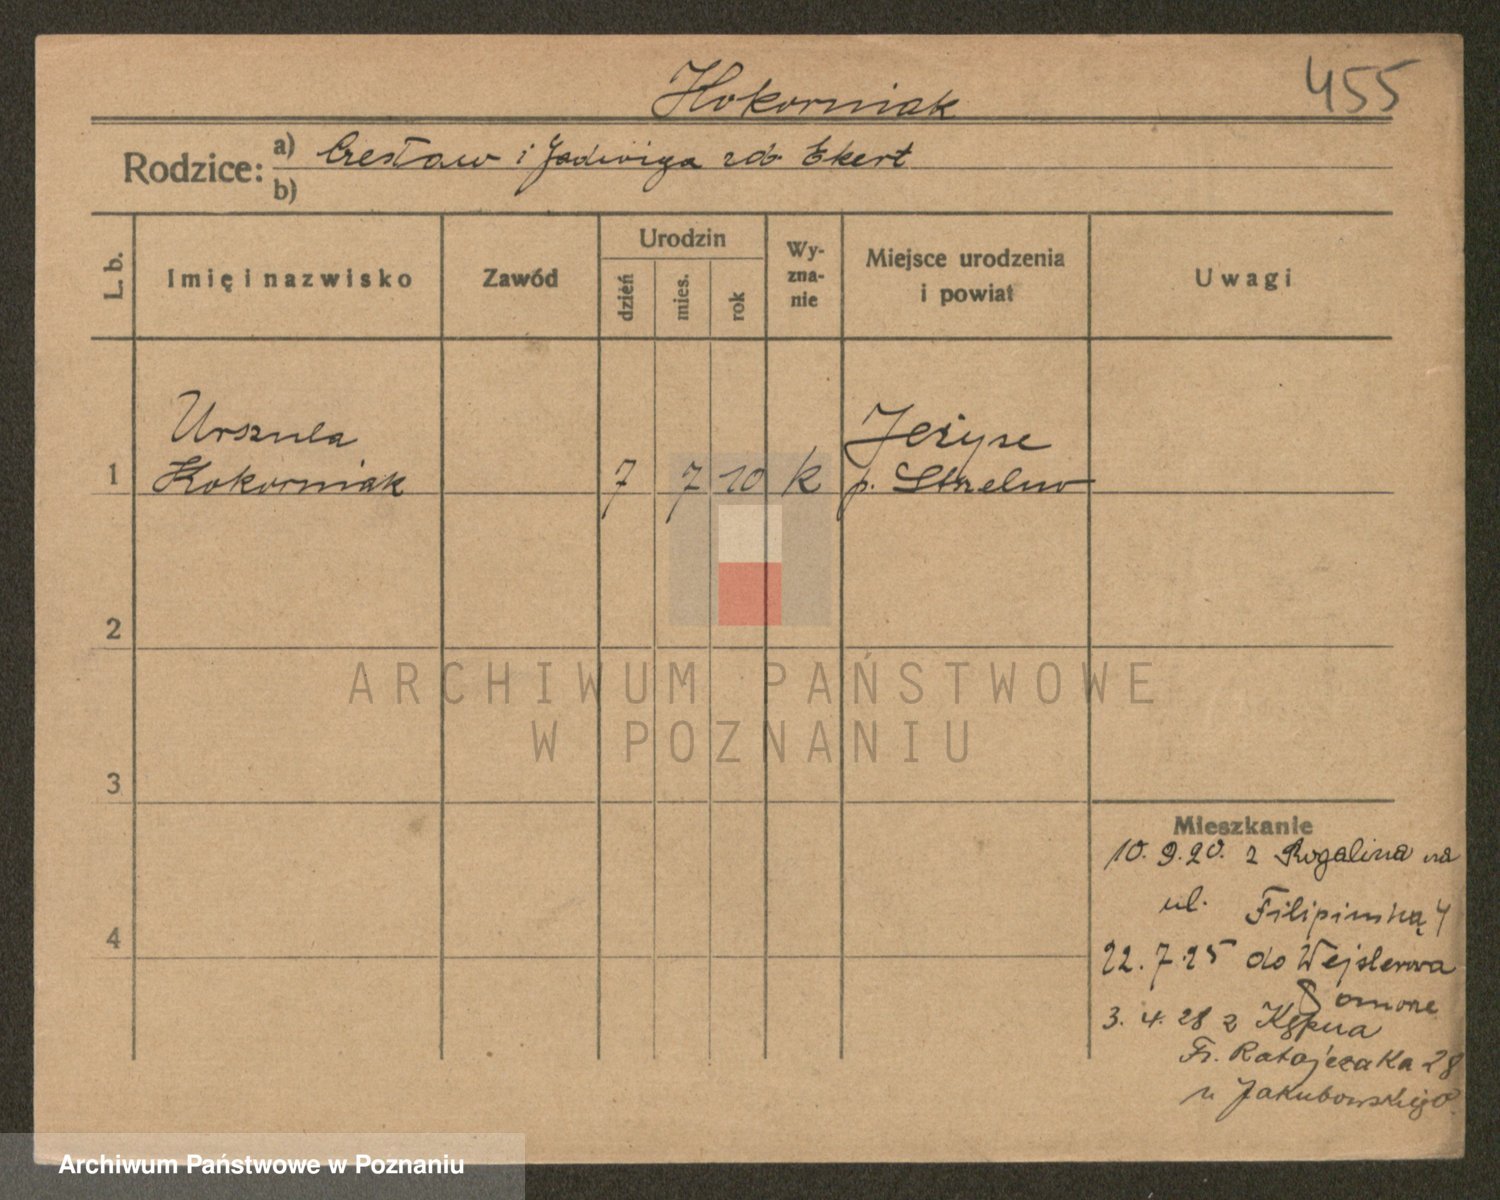 Kokorniak
455
Rodzice: a) Czesław i Jadwiga zd. Ekert
b)
L. b.
Imię i nazwisko
Zawód
Urodzin
dzień
mies.
rok
Wy-
zna-
nie
Miejsce urodzenia
i powiat
Uwagi
Urszula
Jeżyce
1 Kokorniak 7 7 10 k p. Strzelno
2
3
4
Mieszkanie
10. 9. 20. z Rogalina na
ul. Filipińską 4
22. 7. 25 do Wejherowa
3. 4. 28 z
Fr. Ratajczaka 28
u Jakubowskiego
ARCHIWUM PAŃSTWOWE
W POZNANIU
Archiwum Państwowe w Poznaniu